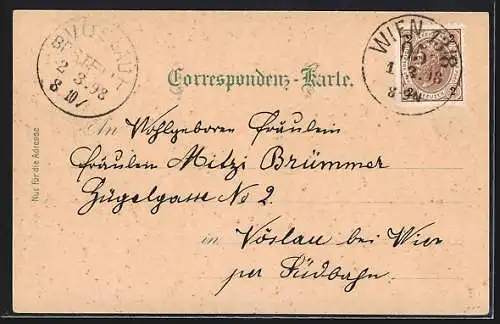 VÖSLAU
BESTELLT
2.3.98
8.10V
WIEN 13/8
1.3.98
2
2
Correspondenz-Karte.
An Wohlgeboren Fräulein
Fräulein Mitzi Brümmer
Hügelgasse No 2
in Vöslau bei Wien
per Südbahn
Nur für die Adresse